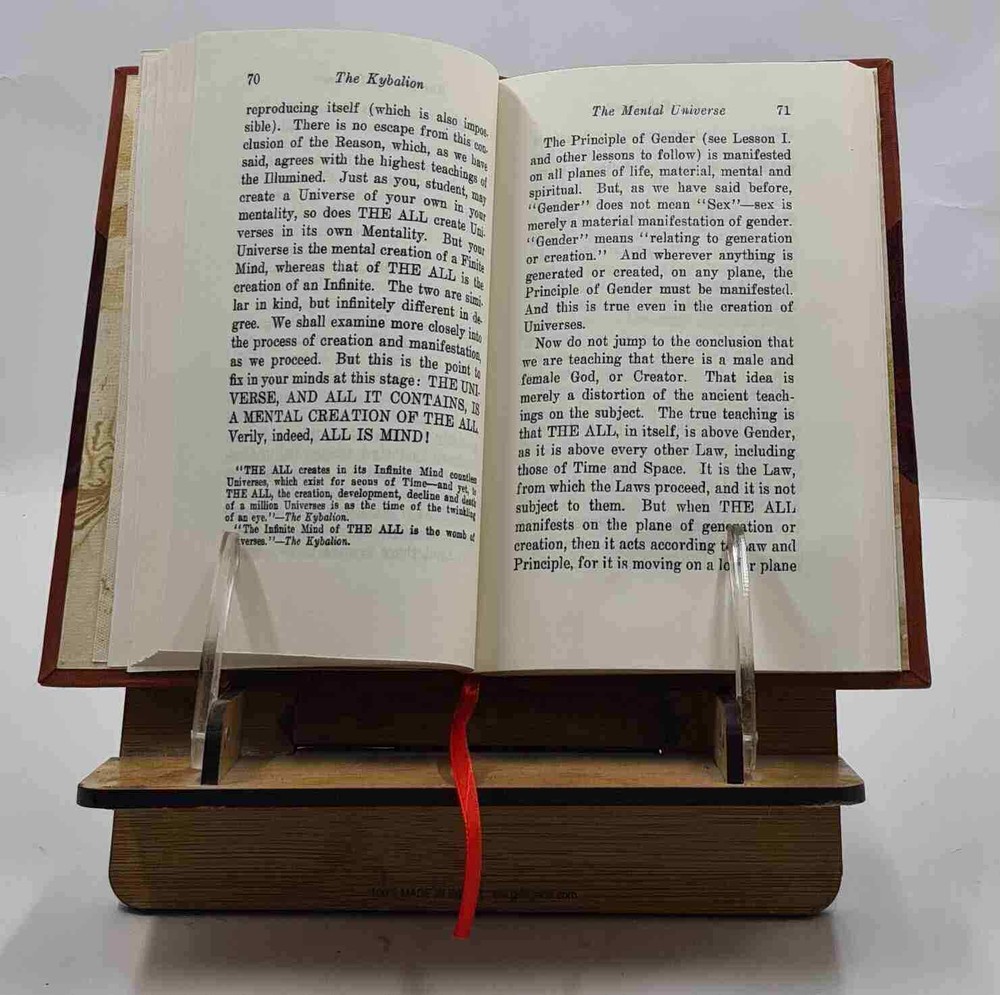 70 The Kybalion
reproducing itself (which is also impos-
sible). There is no escape from this con-
clusion of the Reason, which, as we have
said, agrees with the highest teachings of
the Illumined. Just as you, student, may
create a Universe of your own in your
mentality, so does THE ALL create Uni-
verses in its own Mentality. But your
Universe is the mental creation of a Finite
Mind, whereas that of THE ALL is the
creation of an Infinite. The two are simi-
lar in kind, but infinitely different in de-
gree. We shall examine more closely into
the process of creation and manifestation,
as we proceed. But this is the point to
fix in your minds at this stage: THE UNI-
VERSE, AND ALL IT CONTAINS, IS
A MENTAL CREATION OF THE ALL
Verily, indeed, ALL IS MIND!
"THE ALL creates in its Infinite Mind countless
Universes, which exist for aeons of Time—and yet, to
THE ALL, the creation, development, decline and death
of a million Universes is as the time of the twinkling
of an eye."—The Kybalion.
"The Infinite Mind of THE ALL is the womb of
verses."—The Kybalion.
The Mental Universe 71
The Principle of Gender (see Lesson I.
and other lessons to follow) is manifested
on all planes of life, material, mental and
spiritual. But, as we have said before,
"Gender" does not mean "Sex"—sex is
merely a material manifestation of gender.
"Gender" means "relating to generation
or creation." And wherever anything is
generated or created, on any plane, the
Principle of Gender must be manifested.
And this is true even in the creation of
Universes.
Now do not jump to the conclusion that
we are teaching that there is a male and
female God, or Creator. That idea is
merely a distortion of the ancient teach-
ings on the subject. The true teaching is
that THE ALL, in itself, is above Gender,
as it is above every other Law, including
those of Time and Space. It is the Law,
from which the Laws proceed, and it is not
subject to them. But when THE ALL
manifests on the plane of generation or
creation, then it acts according to Law and
Principle, for it is moving on a lower plane
100% MADE